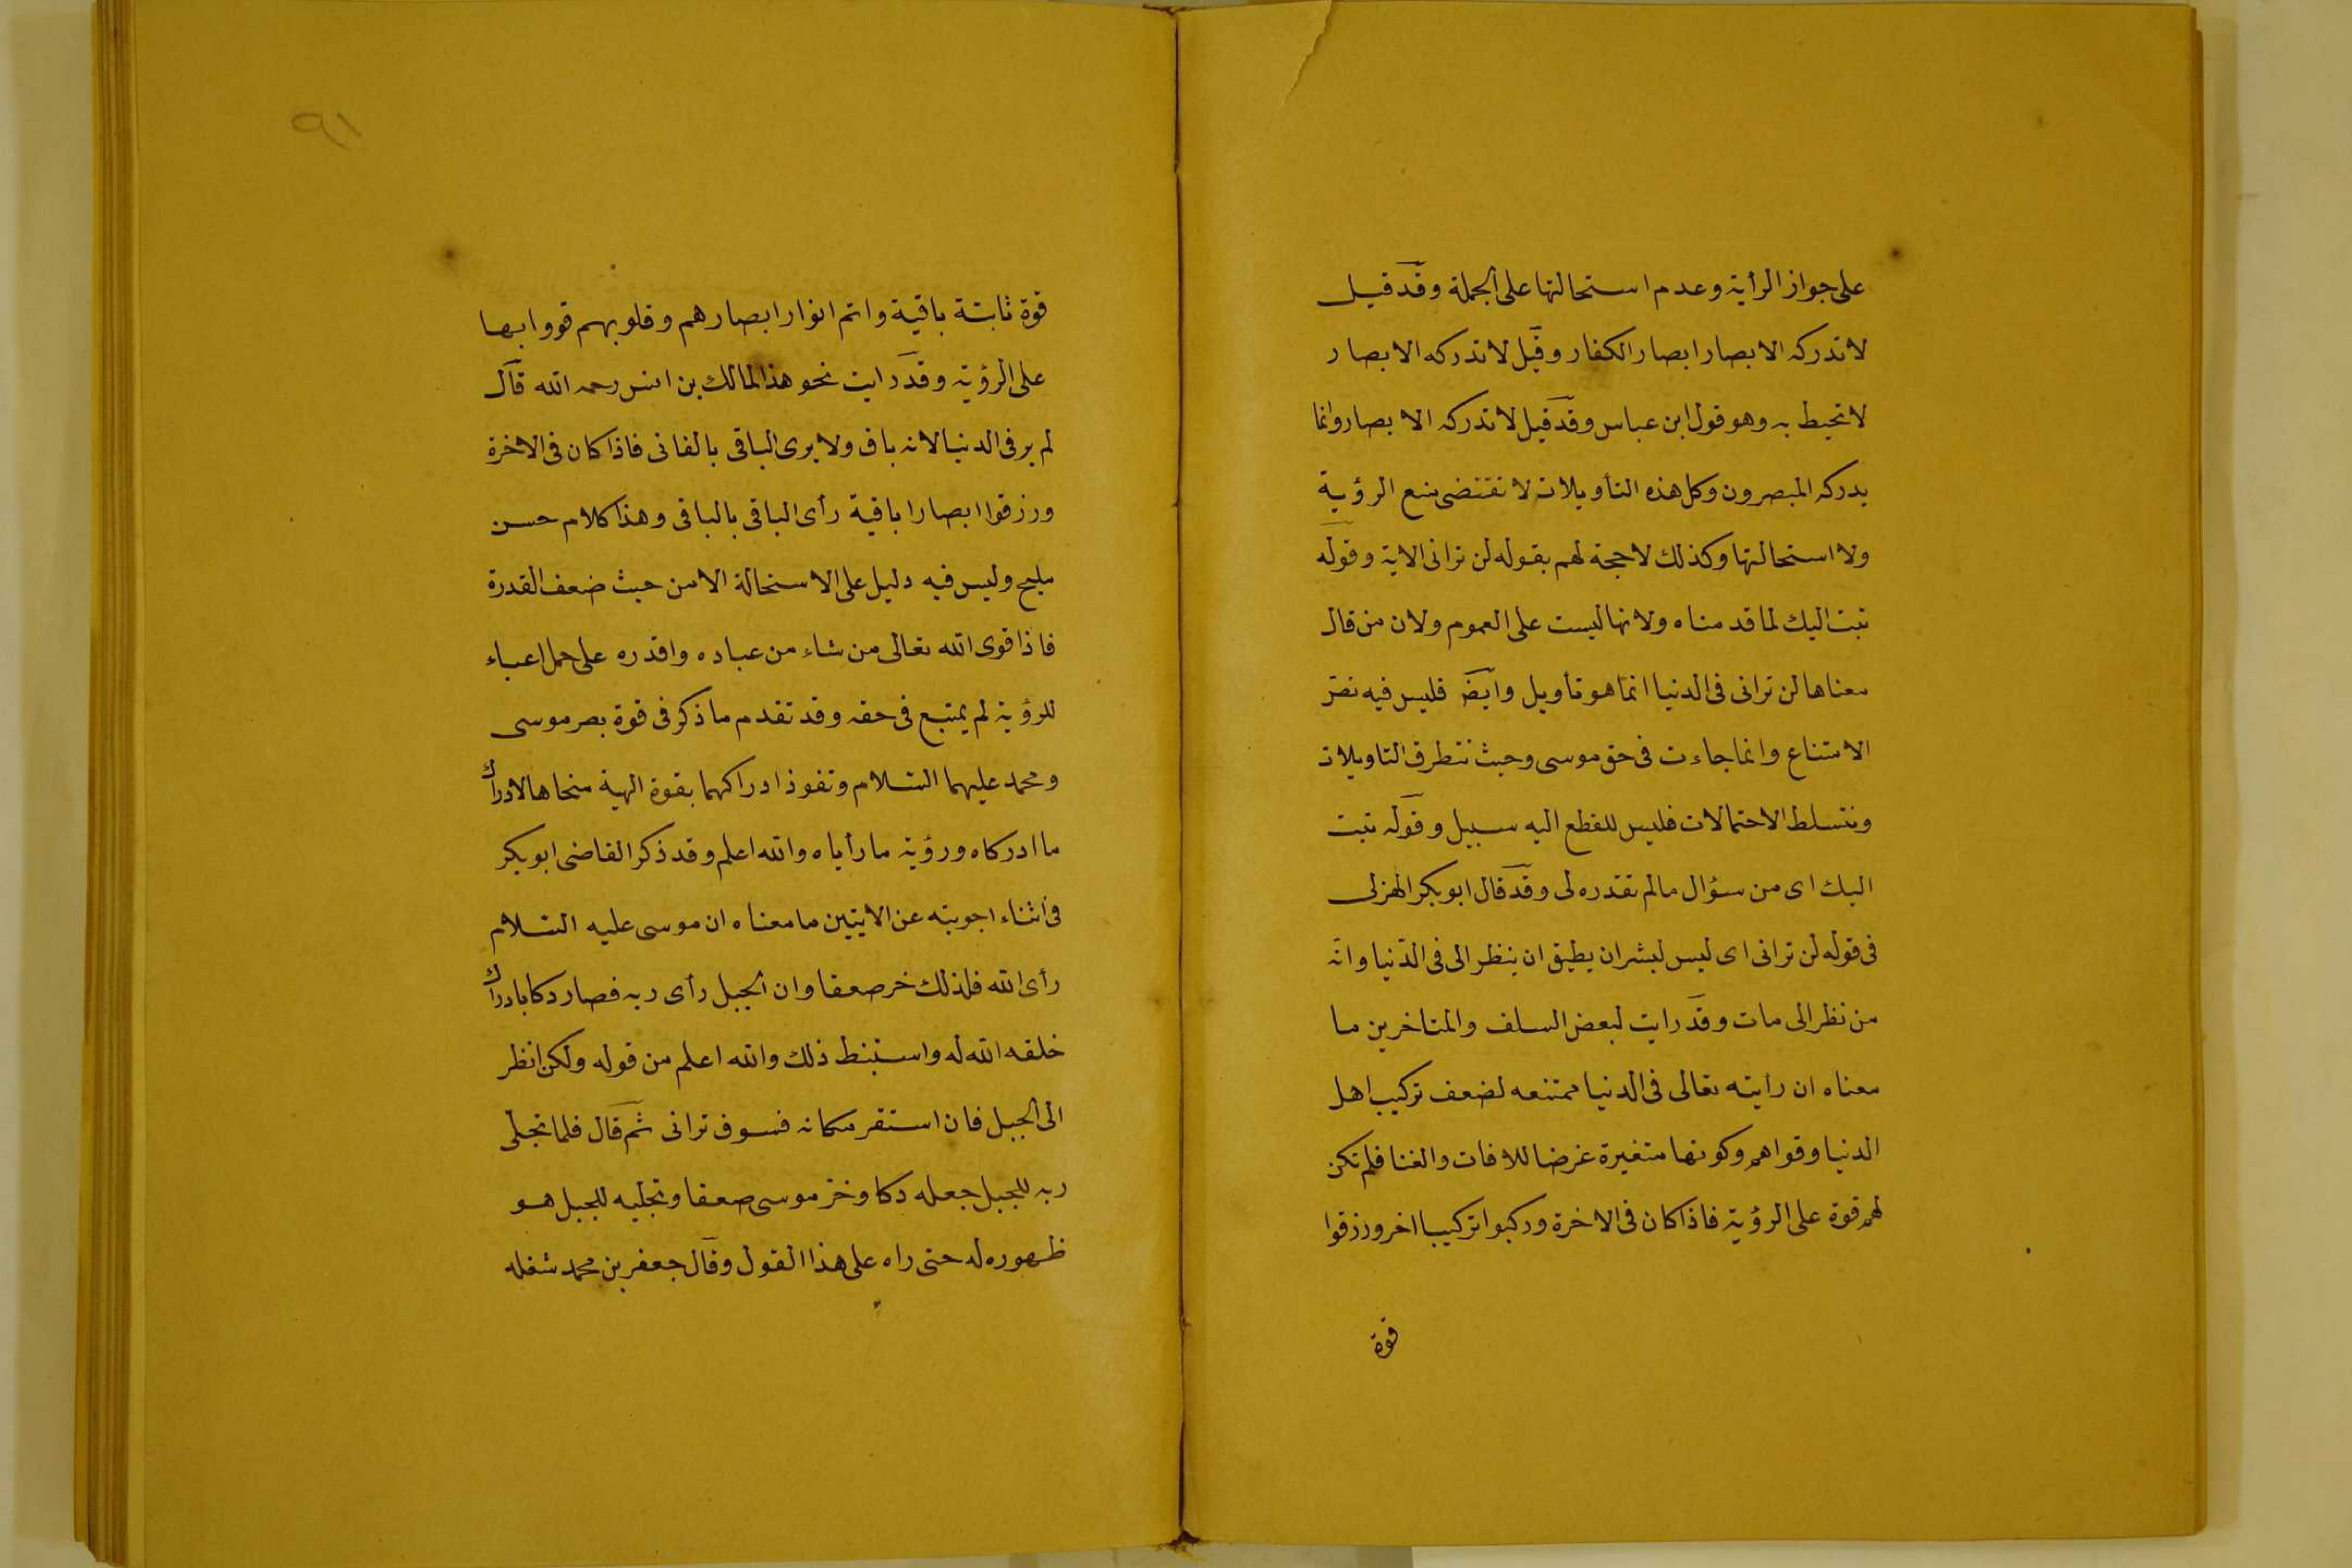 على جواز الرأية وعدم استحالتها على الجملة وقد قيل
لا تدركه الابصار ابصار الكفار وقيل لا تدركه الابصار
لا تحيط به وهو قول ابن عباس وقد قيل لا تدركه الابصار وانما
يدركه المبصرون وكل هذه التأويلات لا تقتضى منع الرؤية
ولا استحالتها وكذلك لا حجة لهم بقوله لن ترانى الاية وقوله
تبت اليك لما قدمناه ولانها ليست على العموم ولان من قال
معناها لن ترانى فى الدنيا انما هو تأويل وايضا فليس فيه نص
الامتناع وانما جاءت فى حق موسى وحيث تتطرق التاويلات
وتتسلط الاحتمالات فليس للقطع اليه سبيل وقوله تبت
اليك اى من سؤال مالم تقدره لى وقد قال ابو بكر الهزلى
فى قوله لن ترانى اى ليس لبشر ان يطيق ان ينظر الى فى الدنيا وانه
من نظر الى مات وقد رايت لبعض السلف والمتاخرين ما
معناه ان رأيته تعالى فى الدنيا ممتنعه لضعف تركيب اهل
الدنيا وقواهم وكونها متغيرة غرضا للافات والفنا فلم تكن
لهم قوة على الرؤية فاذا كان فى الاخرة وركبوا تركيبا اخر ورزقوا
قوة
٩١
قوة ثابتة باقية واتم انوار ابصارهم وقلوبهم قووا بها
على الرؤية وقد رايت نحو هذا لمالك بن انس رحمه الله قال
لم ير فى الدنيا لانه باق ولا يرى الباقى بالفانى فاذا كان فى الاخرة
ورزقوا ابصارا باقية رأى الباقى بالباقى وهذا كلام حسن
مليح وليس فيه دليل على الاستحالة الا من حيث ضعف القدرة
فاذا قوى الله تعالى من شاء من عباده واقدره على حمل اعباء
للرؤية لم يمتنع فى حقه وقد تقدم ما ذكر فى قوة بصر موسى
ومحمد عليهما السلام ونفوذ ادراكهما بقوة الهية منحاها لادراك
ما ادركاه ورؤية ما رأياه والله اعلم وقد ذكر القاضى ابو بكر
فى اثناء اجوبته عن الايتين ما معناه ان موسى عليه السلام
رأى الله فلذلك خر صعقا وان الجبل رأى ربه فصار دكا بادراك
خلقه الله له واستنبط ذلك والله اعلم من قوله ولكن انظر
الى الجبل فان استقر مكانه فسوف ترانى ثم قال فلما تجلى
ربه للجبل جعله دكا وخر موسى صعقا وتجليه للجبل هو
ظهوره له حتى راه على هذا القول وقال جعفر بن محمد شغله